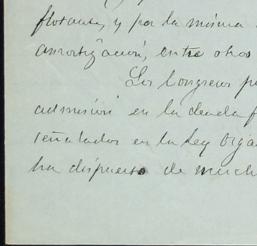 flotante, y por la misma
amortización, entre otros
Los Congresos
admisión en la deuda f
señalados en la Ley Orgá
ha dispuesto de much